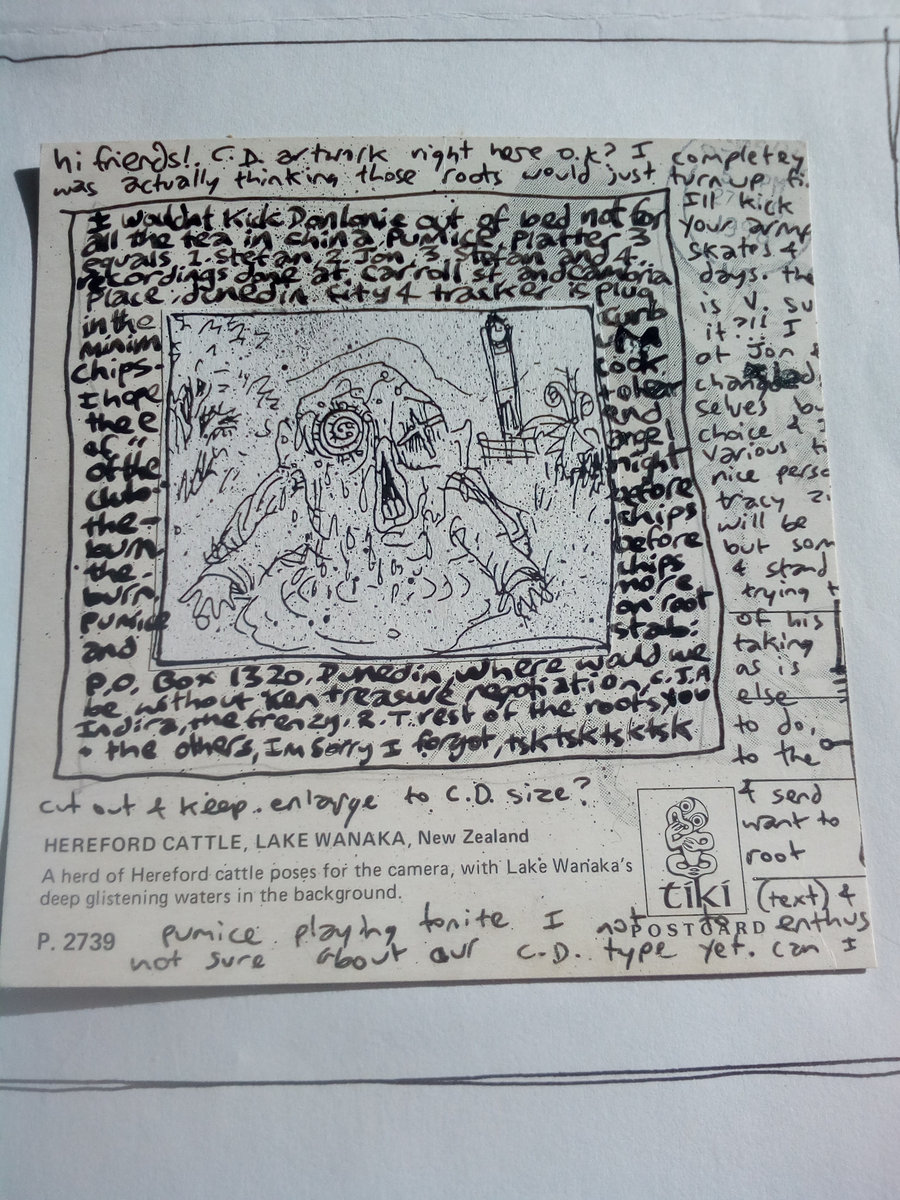 hi friends!. C.D. artwork right here o.k? I completely
was actually thinking those roots would just turn up
I wouldnt kick Donlonie out of bed not for
all the tea in china Pumice, platter 3
squals 1. Stefan, 2. Jon, 3. Stefan and 4.
recordings done at carroll st and cambria
place. dunedin city 4 tracker is plug
in the
minim
chips-
I hope
the e
ef "
of the
clubs-
the-
burn
the
burn.
pumice
and
cook
to hear
end
angel
night
before
chips
before
chips
more
on root
stabi
P.O. Box 1320. Dunedin, where would we
be without Ken treasure negotiation, C.J.A
Indira, the frenzy. R.T. rest of the roots, you
+ the others, Im sorry I forgot, tsk tsk tsk tsk
I'll kick
your army
skates &
days. the
is V. su
it?!! I
of Jon &
changed
selves bu
choice & I
various ti
nice perso
tracy 2
will be
but som
& stand
trying t
of his
taking
as is
else
to do,
to the
& send
want to
root
(text) &
cut out & keep. enlarge to C.D. size?
HEREFORD CATTLE, LAKE WANAKA, New Zealand
A herd of Hereford cattle poses for the camera, with Lake Wanaka's
deep glistening waters in the background.
tiki
POSTCARD
P. 2739
pumice playing tonite I not to enthus
not sure about our C.D. type yet. can I